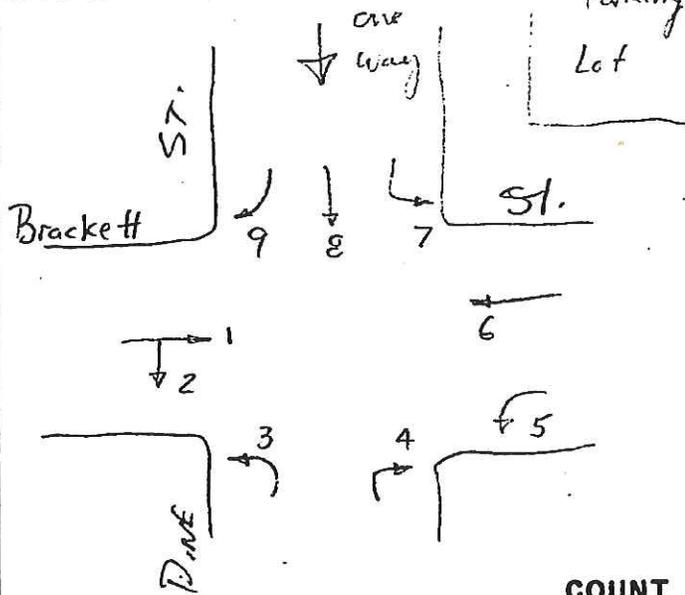 one
way
Parking
Lot
ST.
St.
Brackett
9
8
7
6
1
2
3
4
5
PINE
COUNT